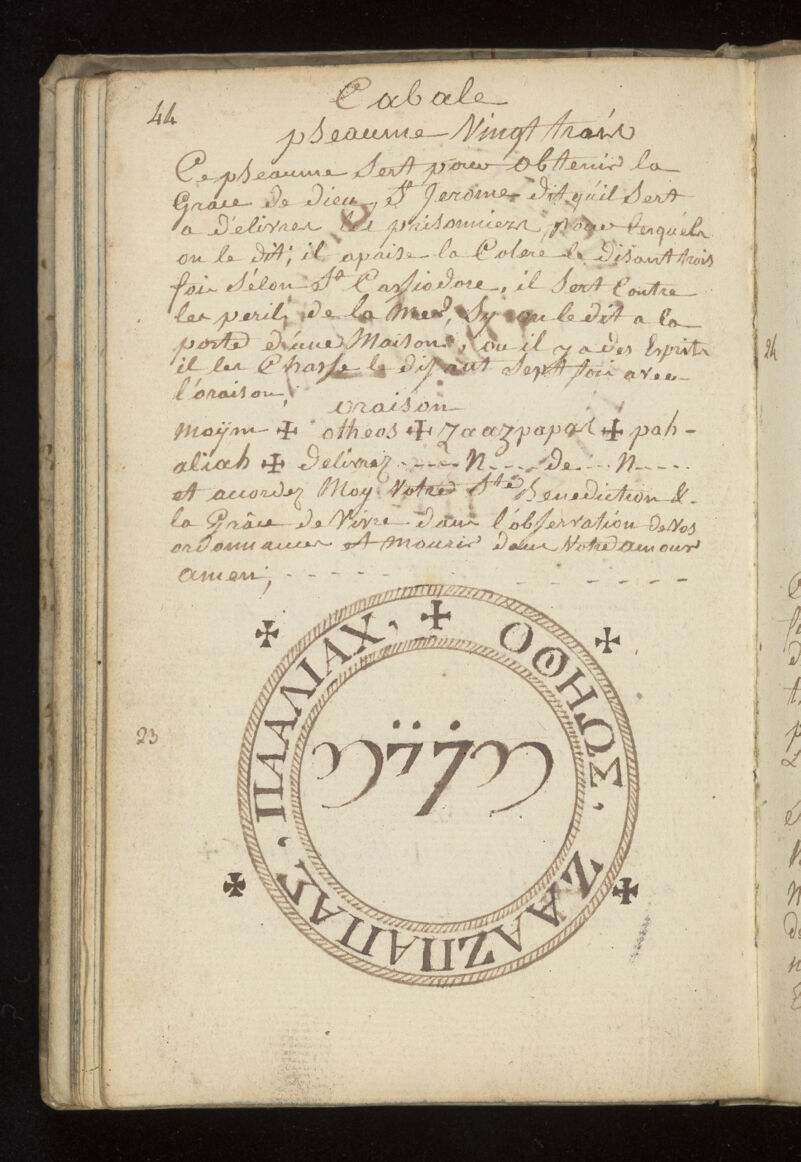 44
Cabale
pseaume Vingt trois
Ce pseaume Sert pour obtenir la
Grace de Dieu, St Jerome dit qu'il Sert
a délivrer les prisonniers, pour lesquels
on le dit; il apaise la Colere le disant trois
fois Sélon St Cassiodore, il Sert Contre
les perils de la Mer, Sy on le dit a la
porte d'une Maison, ou il y a des Esprits
il les Chasse le disant Sept fois avec
l'oraison,
oraison
Moÿm ✠ otheos ✠ Zaazpapas ✠ pah-
aliah ✠ delivrez ---- N---- de --- N----
et accordez Moy Votre Ste Benediction &
la Grâce de Vivre dans l'observation de Vos
ordonnances et mourir dans Votre amour
amen;
23
✠ ΟΘΗΩΣ, ΖΑΑΖΠΑΠΑΣ, ΠΑΑΛΙΑΧ,
24